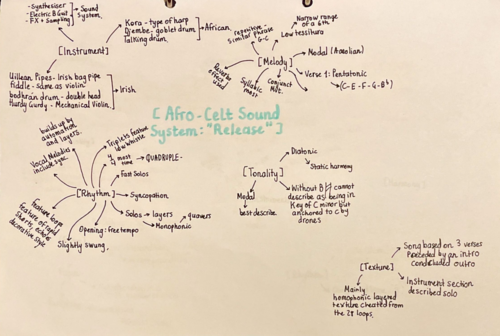 - Synthesiser
- Electric B Guit
- FX + Sampling
Sound
System.
[Instrument]
Kora - type of harp
Djembe - goblet drum
Talking drum.
African.
Uillean Pipes - Irish bag pipe
fiddle - same as violin
bodhrain drum - double head
Hurdy Gurdy - Mechanical Violin.
Irish
repetitive-
similar phrase
G-C
Narrow range
of a 6th.
Low tessitura
[Melody]
Modal (Aeolian)
Verse 1: Pentatonic
(C-E-F-G-Bb)
Reverbe
effected
Syllabic
most
Conjunct
Mvt.
[Afro-Celt Sound
System: "Release"]
builds up by
automation
and layers.
Triplets feature
low whistle
4/4 most time → QUADRUPLE.
Fast Solos
Vocal Melodies
include sync.
[Rhythm]
Syncopation
Solos → layers → quavers
Monophonic
Opening: free tempo
Slightly swung.
feature loop
feature of rapid
shorts, echoes
decorative style
[Tonality]
Diatonic
Static harmony
Modal
best describe.
Without B♮ cannot
describe as being in
Key of C minor but
anchored to C by
drones
[Texture]
Song based on 3 verses
Preceded by an intro
concluded outro
Instrument section
described solo
Mainly
homophonic layered
texture created from
the loops.